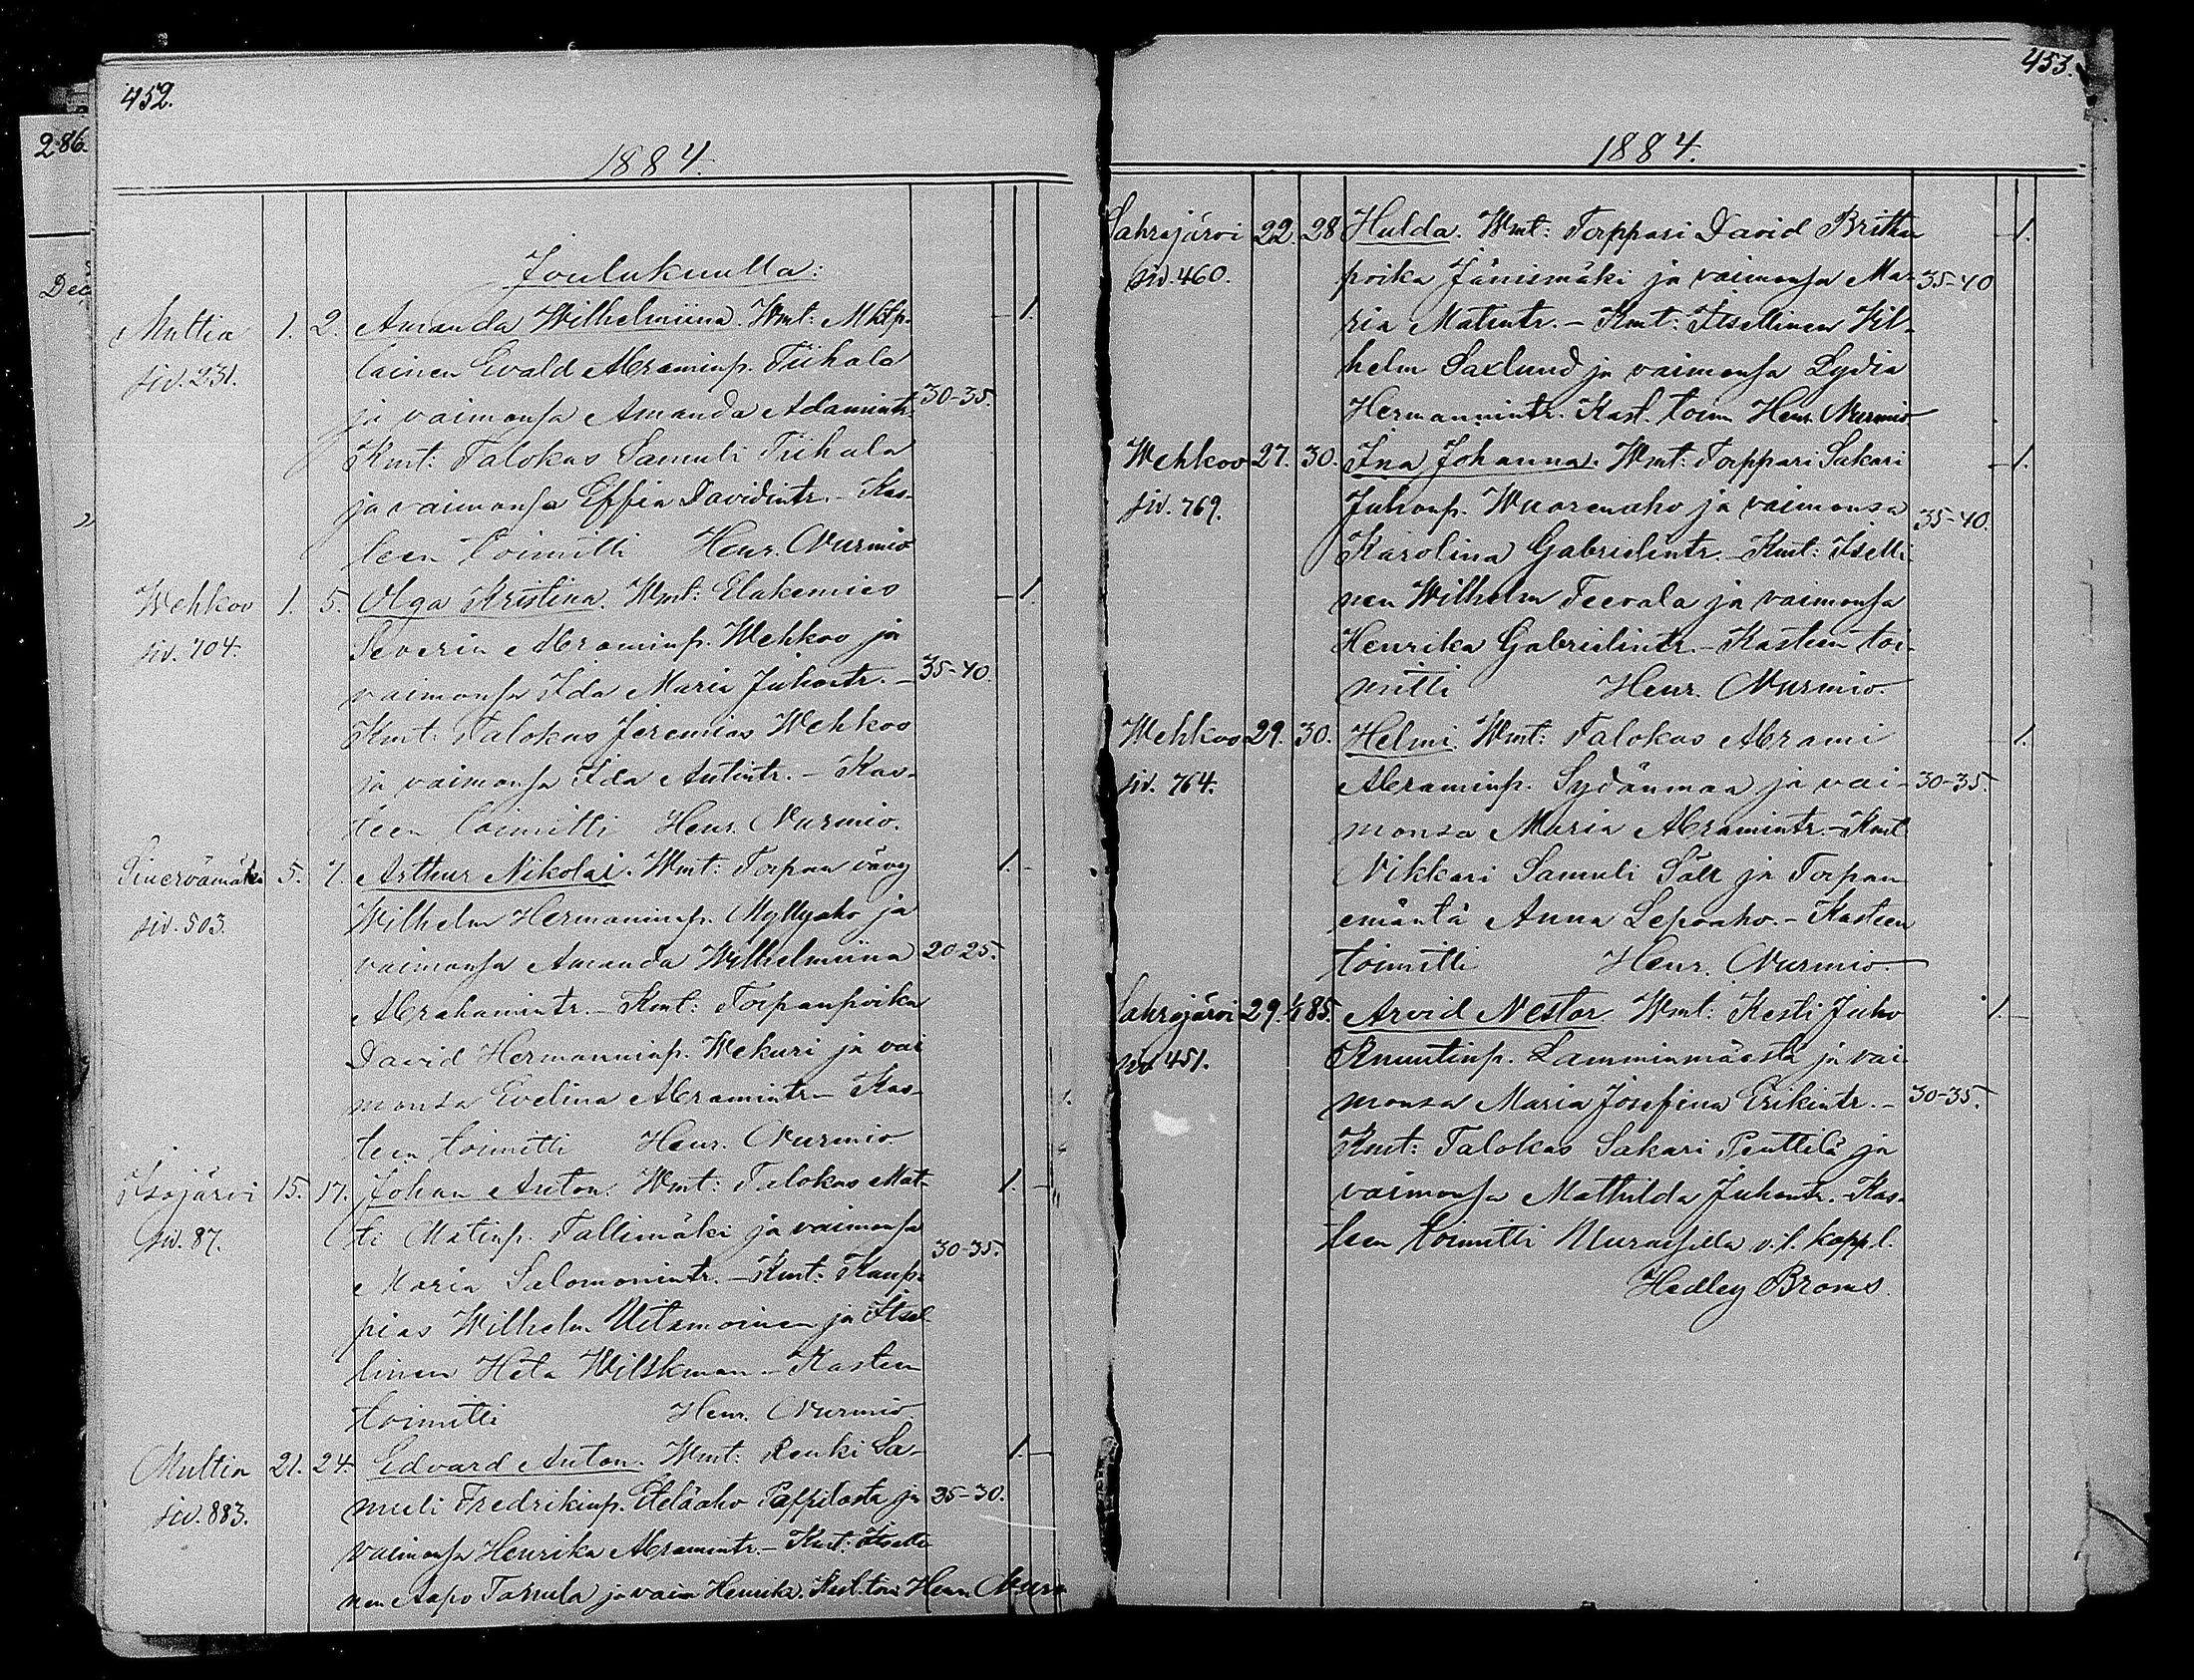 452.
286.
Dec
1884.
Joulukuulla:
Multia 1. 2. Amanda Wilhelmiina. Wmt: Mktp. - 1.
siv. 231. lainen Evald Abraminp. Tiihala
ja vaimonsa Amanda Adamintr. 30-35.
Kmt: Talokas Samuli Tiihala
ja vaimonsa Effia Davidintr. - Kas-
teen toimitti Henr. Nurmio
Wehkoo 1. 5. Olga Kristina. Wmt: Elakemies - 1.
siv. 704. Severin Abraminp. Wehkoo ja
vaimonsa Ida Maria Juhontr. - 35-40.
Kmt: Talokas Jeremias Wehkoo
ja vaimonsa Ida Antintr. - Kas-
teen toimitti Henr. Nurmio.
Sinervämäki 5. 7. Arthur Nikolai. Wmt: Torpan vävy 1. -
siv. 503. Wilhelm Hermanninp. Myllyaho ja
vaimonsa Amanda Wilhelmiina 20-25.
Abrahamintr. - Kmt: Torpanpoika
David Hermanninp. Wekuri ja vai
monsa Evelina Abramintr. - Kas-
teen toimitti Henr. Nurmio
Isojärvi 15. 17. Johan Anton. Wmt: Talokas Mat- 1. -
siv. 87. ti Matinp. Tallimäki ja vaimonsa
Maria Salomonintr. - Kmt: Kaup- 30-35.
pias Wilhelm Uitamoinen ja Itsel-
linen Heta Wilskman - Kasteen
toimitti Henr. Nurmio
Multia 21. 24. Edvard Anton. Wmt: Renki Sa- 1. -
siv. 883. muli Fredrikinp. Eteläaho Pappilasta ja 25-30.
vaimonsa Henrika Abramintr. - Kmt: Itselli
nen Aapo Tarvula ja vaim Henrika. Kast. toim Henr Nurm
453.
1884.
Sahrajärvi 22. 28 Hulda. Wmt: Torppari David Britan - 1.
siv. 460. poika Jänismäki ja vaimonsa Ma- 35-40
ria Matintr. - Kmt: Itsellinen Vil-
helm Saxlund ja vaimonsa Lydia
Hermannintr. Kast. toim Henr. Nurmio
Wehkoo 27. 30. Ina Johanna. Wmt: Torppari Sakari - 1.
siv. 769. Juhonp. Wuorenaho ja vaimonsa 35-40.
Karolina Gabrielintr. - Kmt: Itselli
nen Wilhelm Teerala ja vaimonsa
Henrika Gabrielintr. - Kasteen toi-
mitti Henr. Nurmio.
Wehkoo 29. 30. Helmi. Wmt: Talokas Abrami - 1.
siv. 764. Abraminp. Sydänmaa ja vai- 30-35.
monsa Maria Abramintr. - Kmt
Nikkari Samuli Säll ja Torpan
emäntä Anna Lepoaho. - Kasteen
toimitti Henr. Nurmio.
Sahrajärvi 29. 1/1 85. Arvid Nestor Wmt: Kesti Juho 1. -
siv 451. Knuutinp. Lamminmäestä ja vai
monsa Maria Josefina Erikintr. - 30-35.
Kmt: Talokas Sakari Penttilä ja
vaimonsa Mathilda Juhontr. - Kas-
teen toimitti Uuraisilla v.t. kappl.
Hedley Broms.